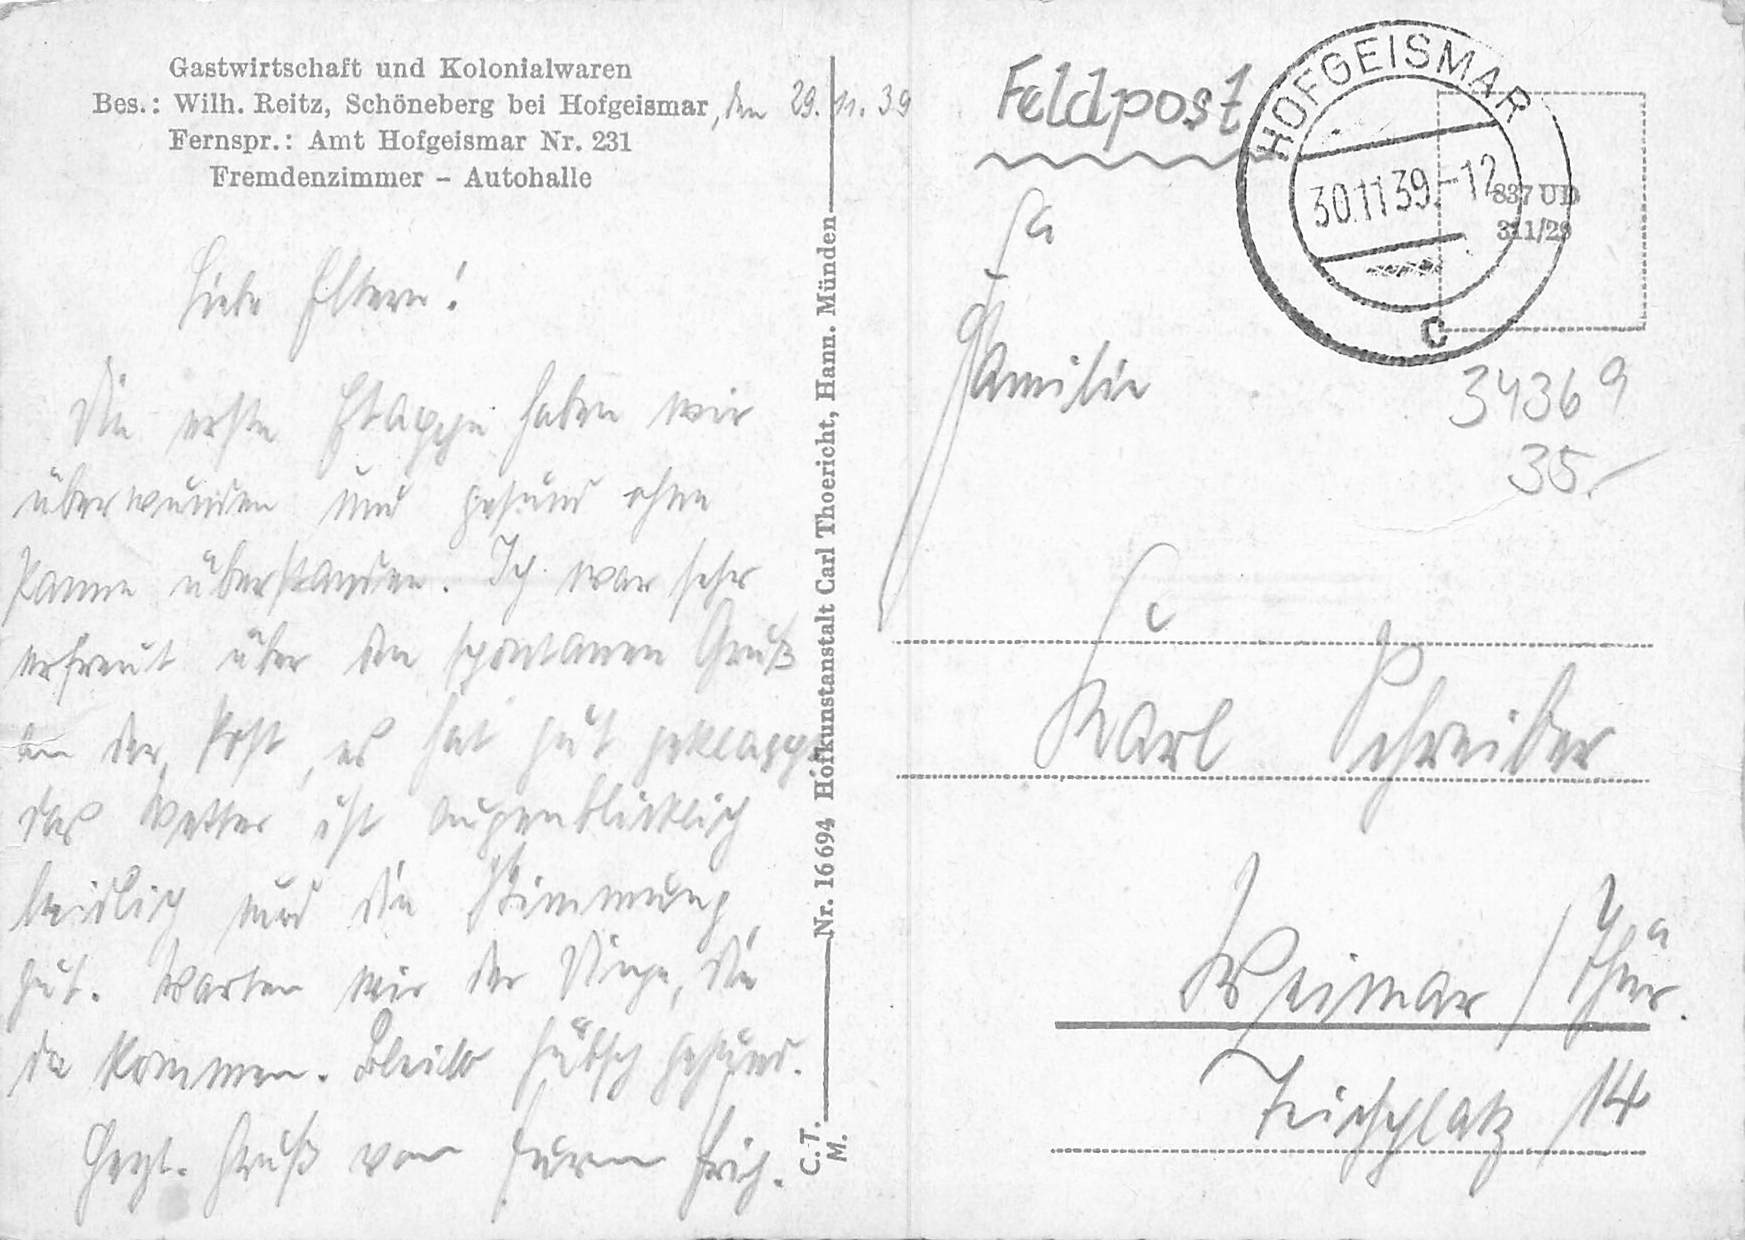 Gastwirtschaft und Kolonialwaren
Bes.: Wilh. Reitz, Schöneberg bei Hofgeismar, den 29. 11. 39
Fernspr.: Amt Hofgeismar Nr. 231
Fremdenzimmer – Autohalle
Liebe Eltern!
Die erste Etappe haben wir
überwunden und gesund ohne
Panne überstanden. Ich war sehr
erfreut über den spontanen Gruß
an der Post, es hat gut geklappt
das Wetter ist augenblicklich
leidlich und die Stimmung
gut. Warten wir der Dinge, die
da kommen. Bleibt hübsch gesund.
Herzl. Gruß von Eurem Erich.
Nr. 16694 Hofkunstanstalt Carl Thoericht, Hann. Münden
C.T.
M.
Feldpost
HOFGEISMAR
30.11.39.-12
c
837 UD
311/29
34369
35.
Familie
Karl Schreiber
Weimar / Thür.
Teichplatz 14